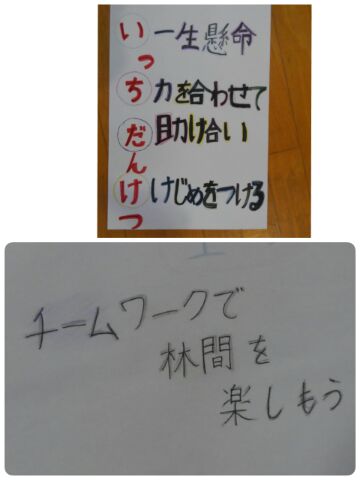 いっちだんけつ
一生懸命
力を合わせて
助け合い
けじめをつける
チームワークで
林間を
楽しもう